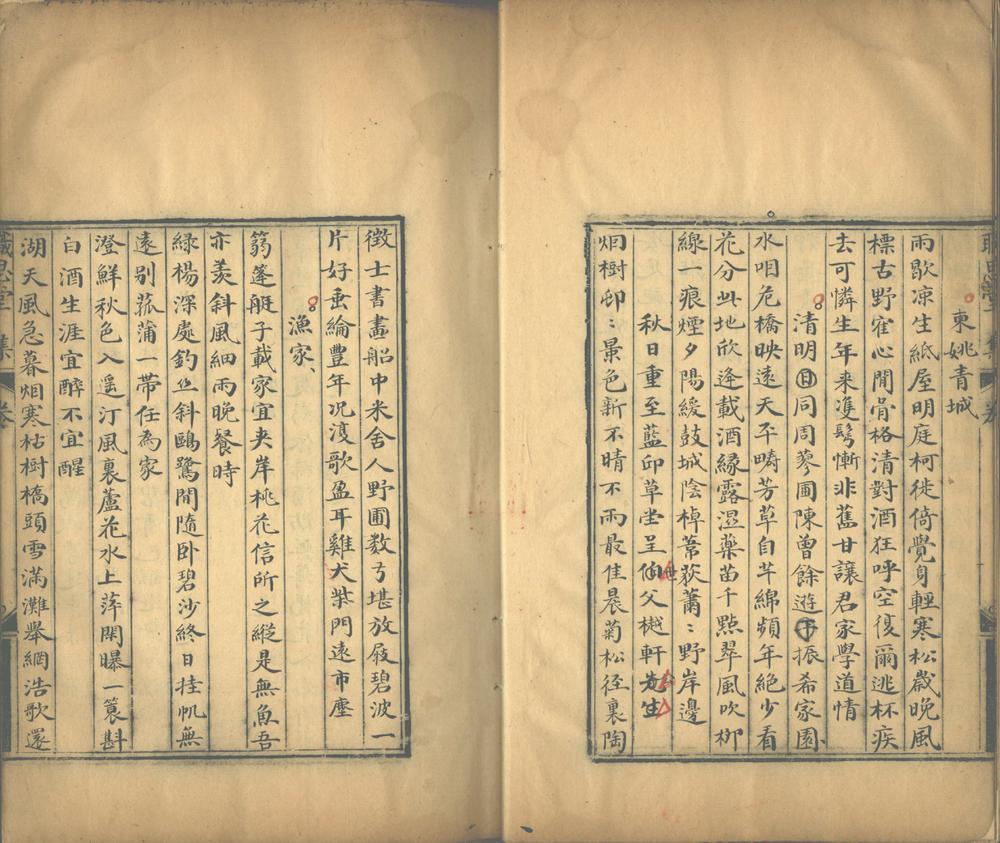 東姚青城
雨歇凉生紙屋明庭柯徙倚覺身輕寒松歲晚風
標古野寉心閒骨格清對酒狂呼空復爾逃杯疾
去可憐生年来雙髩慚非舊甘讓君家學道情
清明日同周蓼圃陳曾餘遊于振希家園
水咱危橋映遠天平疇芳草自芊綿頻年絕少看
花分此地欣逢載酒緣露濕藥苗千點翠風吹柳
線一痕煙夕陽緩鼓城陰棹葦荻蕭〻野岸邊
秋日重至藍印草堂呈伯父樾軒先生
烟樹邨〻景色新不晴不雨最佳晨菊松徑裏陶
徴士書畫船中米舍人野圃数弓堪放屐碧波一
片好垂綸豐年况復歌盈耳雞犬柴門遠市塵
漁家
篛蓬艇子載家宜夾岸桃花信所之縱是無魚吾
亦羨斜風細雨晚餐時
緑楊深處釣丝斜鷗鷺閒隨卧碧沙終日挂帆無
遠别菰蒲一帶任為家
澄鮮秋色入遥汀風裏蘆花水上萍閑曝一簑斟
白酒生涯宜醉不宜醒
湖天風急暮烟寒枯樹橋頭雪滿灘舉網浩歌還
集
卷